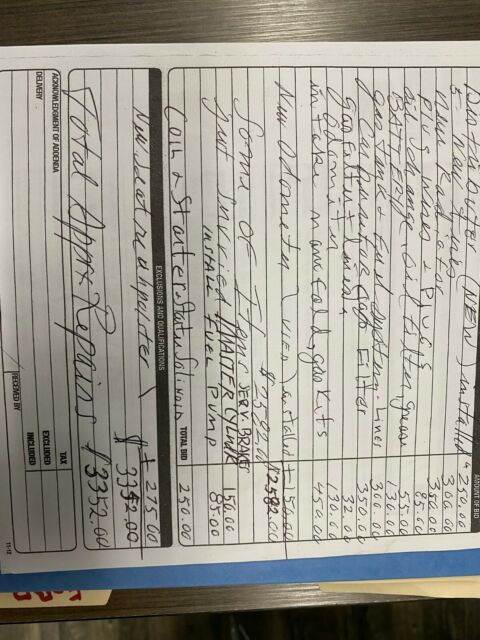 AMOUNT OF BID
Distributor (NEW) installed 250.00
5 - New Tires 300.00
New Radiator 350.00
Plug wires + Plugs 85.00
oil change, oil Filter, grease 55.00
BATTERY 130.00
gas Tank + Fuel system - Lines 350.00
Carburetor, gas Filter 350.00
gas Filter Lines 32.00
Odometer 130.00
intake manifold, gaskets 450.00
New Odometer installed + 150.00
$2582.00
$2582.00
Some OF
Just Serviced SERV. BRAKES
MASTER CYLINDER 150.00
INSTALL FUEL PUMP 85.00
Coil + Starter + Starter Solinoid 250.00
TOTAL BID
EXCLUSIONS AND QUALIFICATIONS
New Seat reupholster + 275.00
$3352.00
Total Appx Repairs $3352.00
ACKNOWLEDGMENT OF ADDENDA
DELIVERY
TAX
EXCLUDED
INCLUDED
RECEIVED BY
11-12